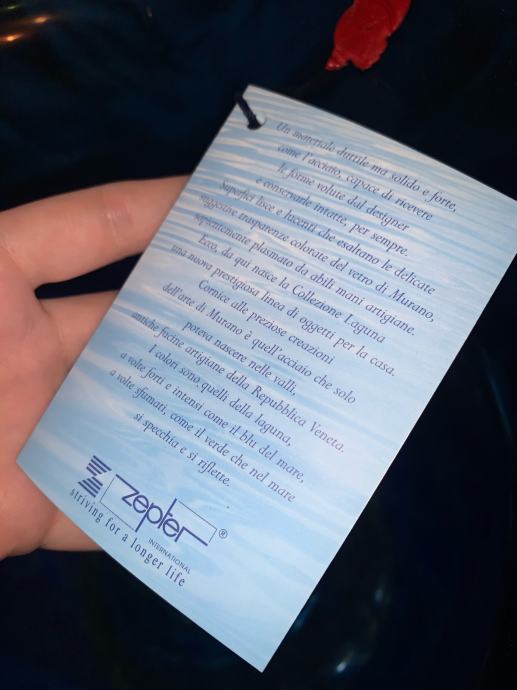 Un materiale duttile ma solido e forte,
come l'acciaio, capace di ricevere
le forme volute dal designer
e conservarle intatte, per sempre.
Superfici lisce e lucenti che esaltano le delicate
suggestive trasparenze colorate del vetro di Murano,
sapientemente plasmato da abili mani artigiane.
Ecco, da qui nasce la Collezione Laguna
una nuova prestigiosa linea di oggetti per la casa.
Cornice alle preziose creazioni
dell'arte di Murano è quell'acciaio che solo
poteva nascere nelle valli,
antiche fucine artigiane della Repubblica Veneta.
I colori sono quelli della laguna,
a volte forti e intensi come il blu del mare,
a volte sfumati, come il verde che nel mare
si specchia e si riflette.
zepter®
INTERNATIONAL
striving for a longer life